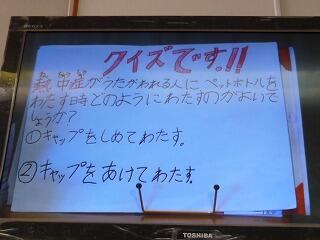 クイズです!!
熱中症がうたがわれる人にペットボトルを
わたす時どのようにわたすのがよいで
しょうか?
①キャップをしめてわたす。
②キャップをあけてわたす
TOSHIBA